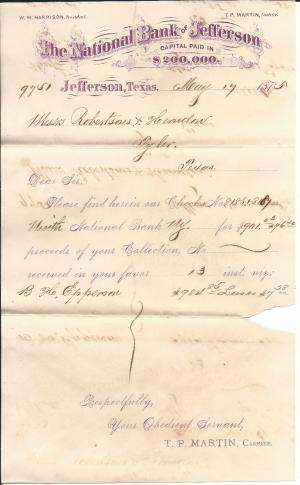 W. M. HARRISON, President.
T. P. MARTIN, Cashier.
The National Bank of Jefferson
CAPITAL PAID IN
$200,000.
Jefferson, Texas, May 17 1875
Messrs Robertsons & Herndon
Tyler
Texas.
Dear Sir:
Please find herein our Checks No
Ninth National Bank NY. for $
proceeds of your Collection, No.
received in your favor 13 inst. viz:
B H Epperson $984 85 Less $7 38
Respectfully,
Your Obedient Servant,
T. P. MARTIN, CASHIER.